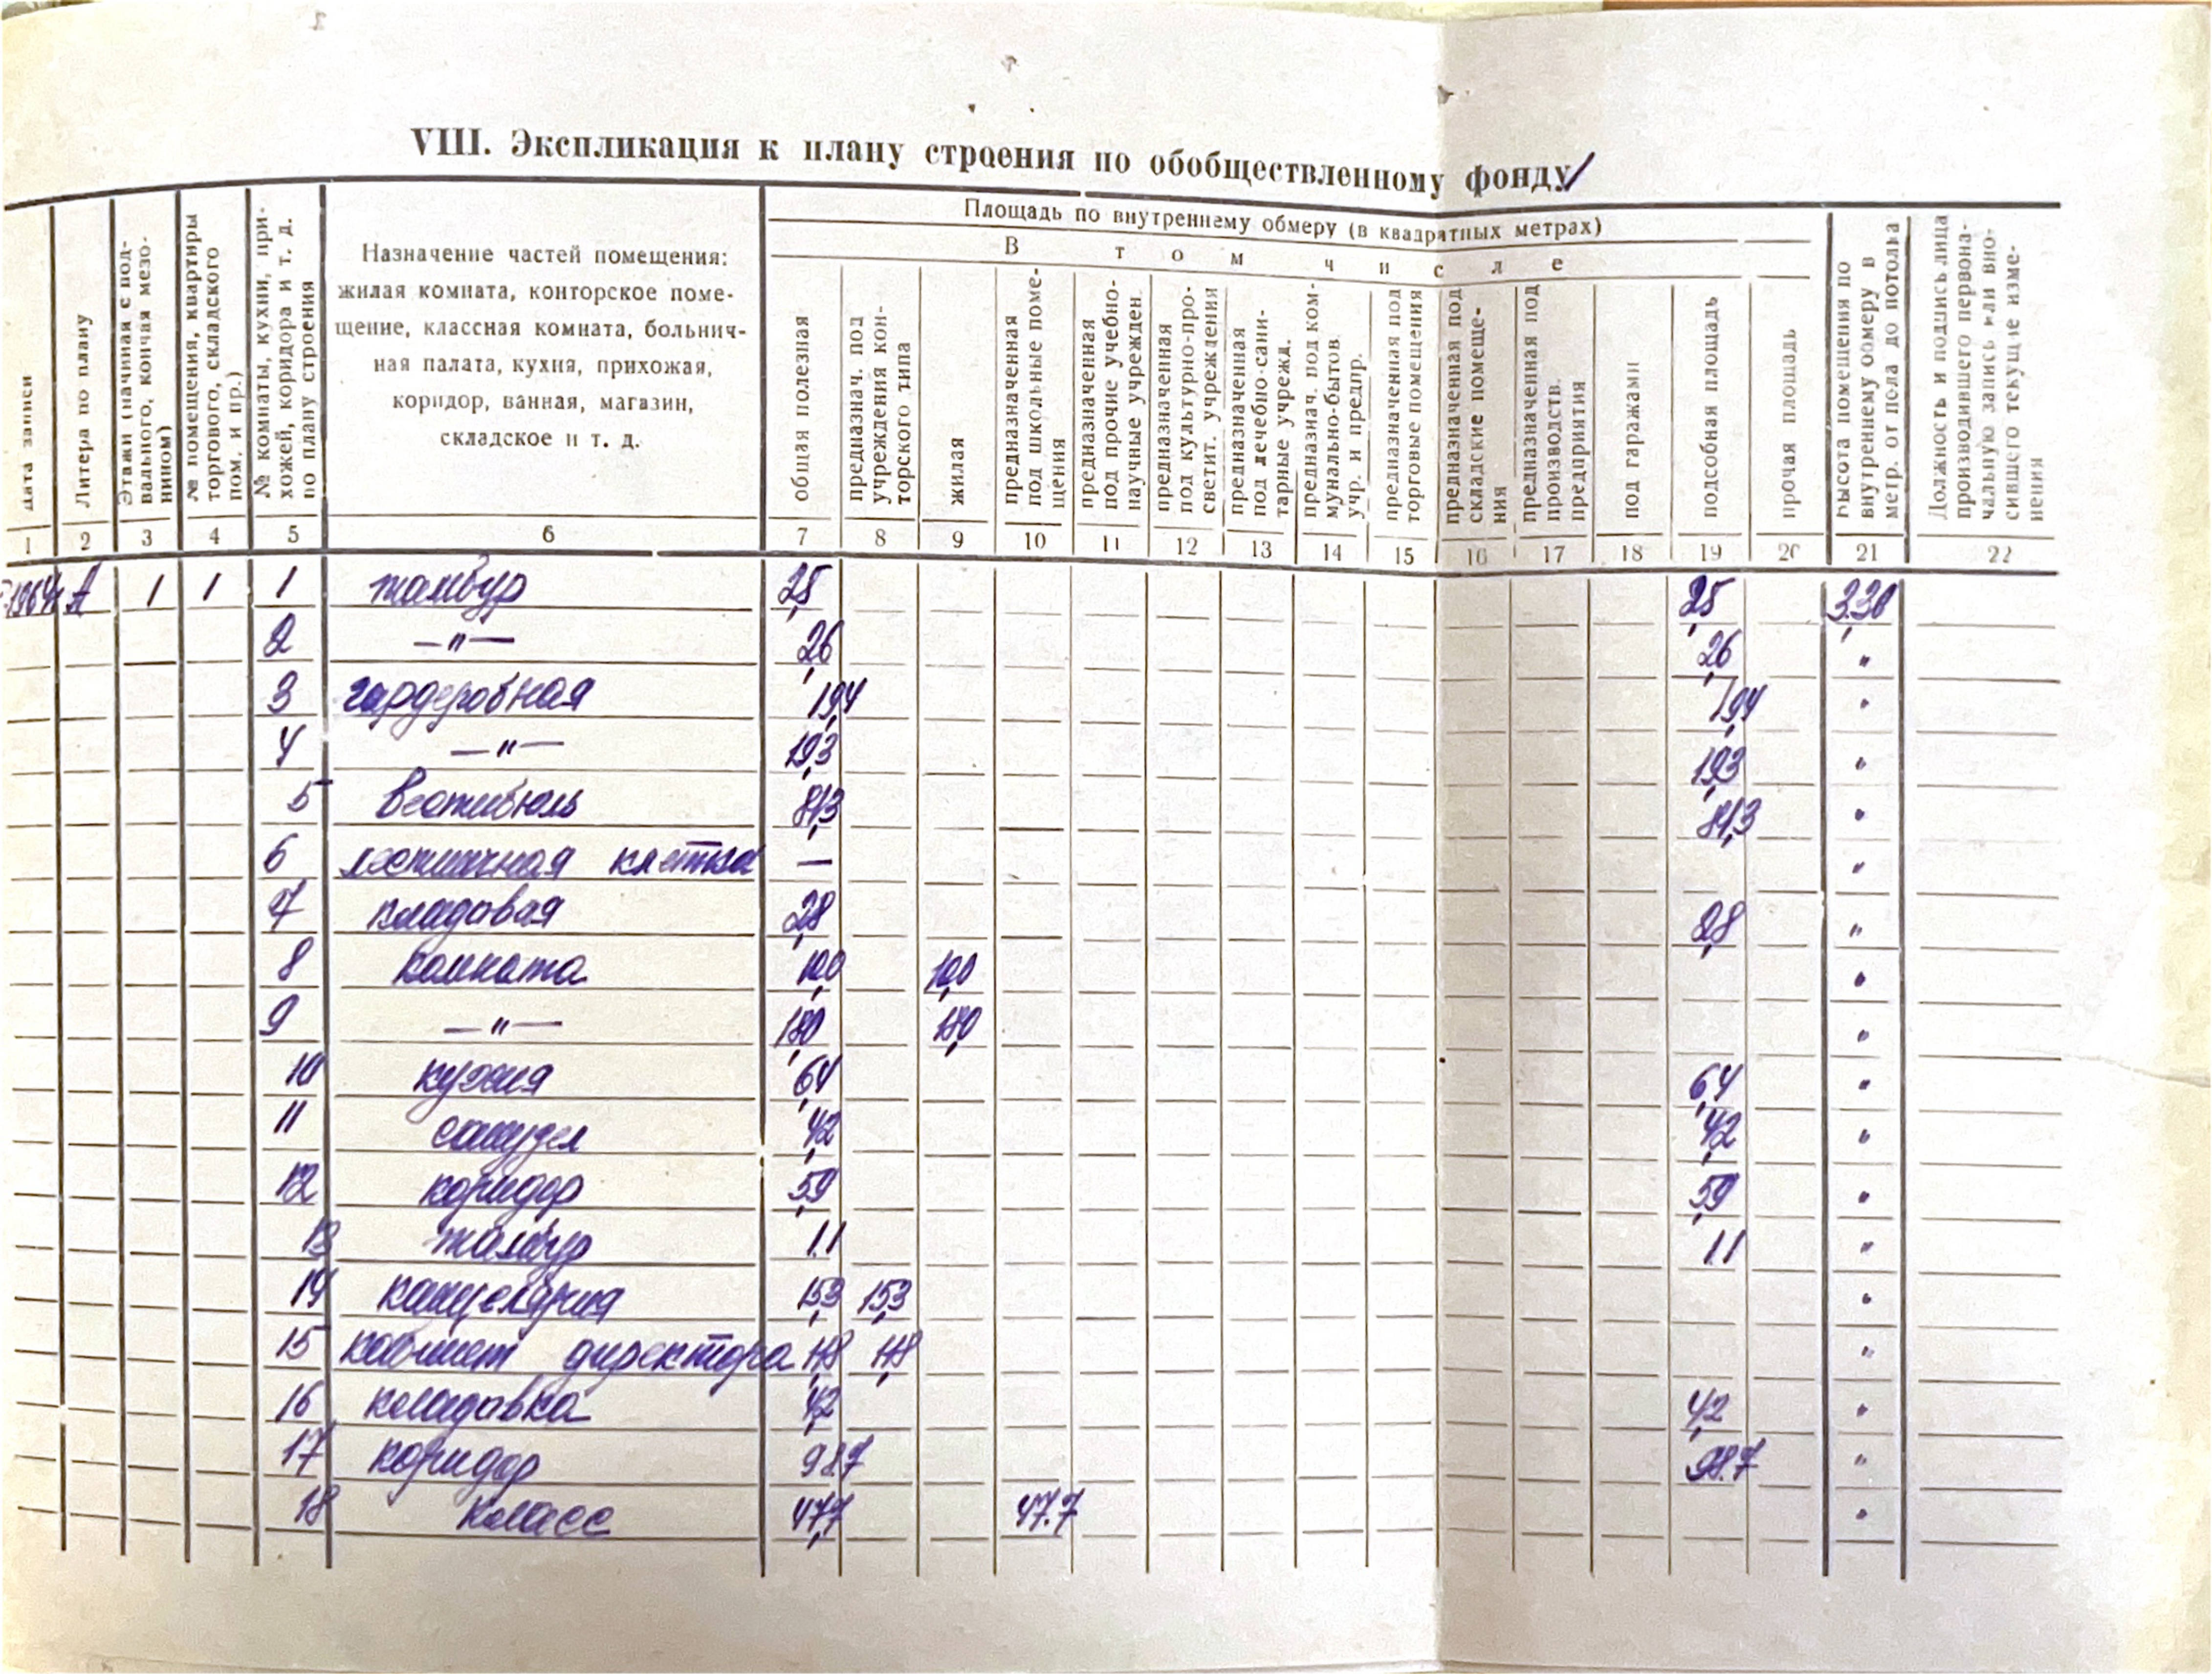 VIII. Экспликация к плану строения по обобществленному фонду
Площадь по внутреннему обмеру (в квадратных метрах)
В том числе
Дата записи
Литера по плану
Этажи (начиная с под-
вального, кончая мезо-
нином)
№ помещения, квартиры
торгового, складского
пом. и пр.)
№ комнаты, кухни, при-
хожей, коридора и т. д.
по плану строения
Назначение частей помещения:
жилая комната, конторское поме-
щение, классная комната, больнич-
ная палата, кухня, прихожая,
коридор, ванная, магазин,
складское и т. д.
общая полезная
предназнач. под
учреждения кон-
торского типа
жилая
предназначенная
под школьные поме-
щения
предназначенная
под прочие учебно-
научные учрежден.
предназначенная
под культурно-про-
светит. учреждения
предназначенная
под лечебно-сани-
тарные учрежд.
предназнач. под ком-
мунально-бытов.
учр. и предпр.
предназначенная под
торговые помещения
предназначенная под
складские помеще-
ния
предназначенная под
производств.
предприятия
под гаражами
подсобная площадь
прочая площадь
Высота помещения по
внутреннему обмеру в
метр. от пола до потолка
Должность и подпись лица
производившего первона-
чальную запись или вно-
сившего текущие изме-
нения
1 2 3 4 5 6 7 8 9 10 11 12 13 14 15 16 17 18 19 20 21 22
1964г А 1 1 1 тамбур 2,5 2,5 3,30
2 —"— 2,6 2,6 "
3 гардеробная 19,4 19,4 "
4 —"— 19,3 19,3 "
5 вестибюль 81,3 81,3 "
6 лестничная клетка — "
7 кладовая 2,8 2,8 "
8 комната 10,0 10,0 "
9 —"— 18,0 18,0 "
10 кухня 6,4 6,4 "
11 санузел 4,2 4,2 "
12 коридор 5,9 5,9 "
13 тамбур 1.1 1.1 "
14 канцелярия 15,3 15,3 "
15 кабинет директора "
16 кладовка 4,2 4,2 "
17 коридор 98.7 98.7 "
18 класс 47,7 47.7 "